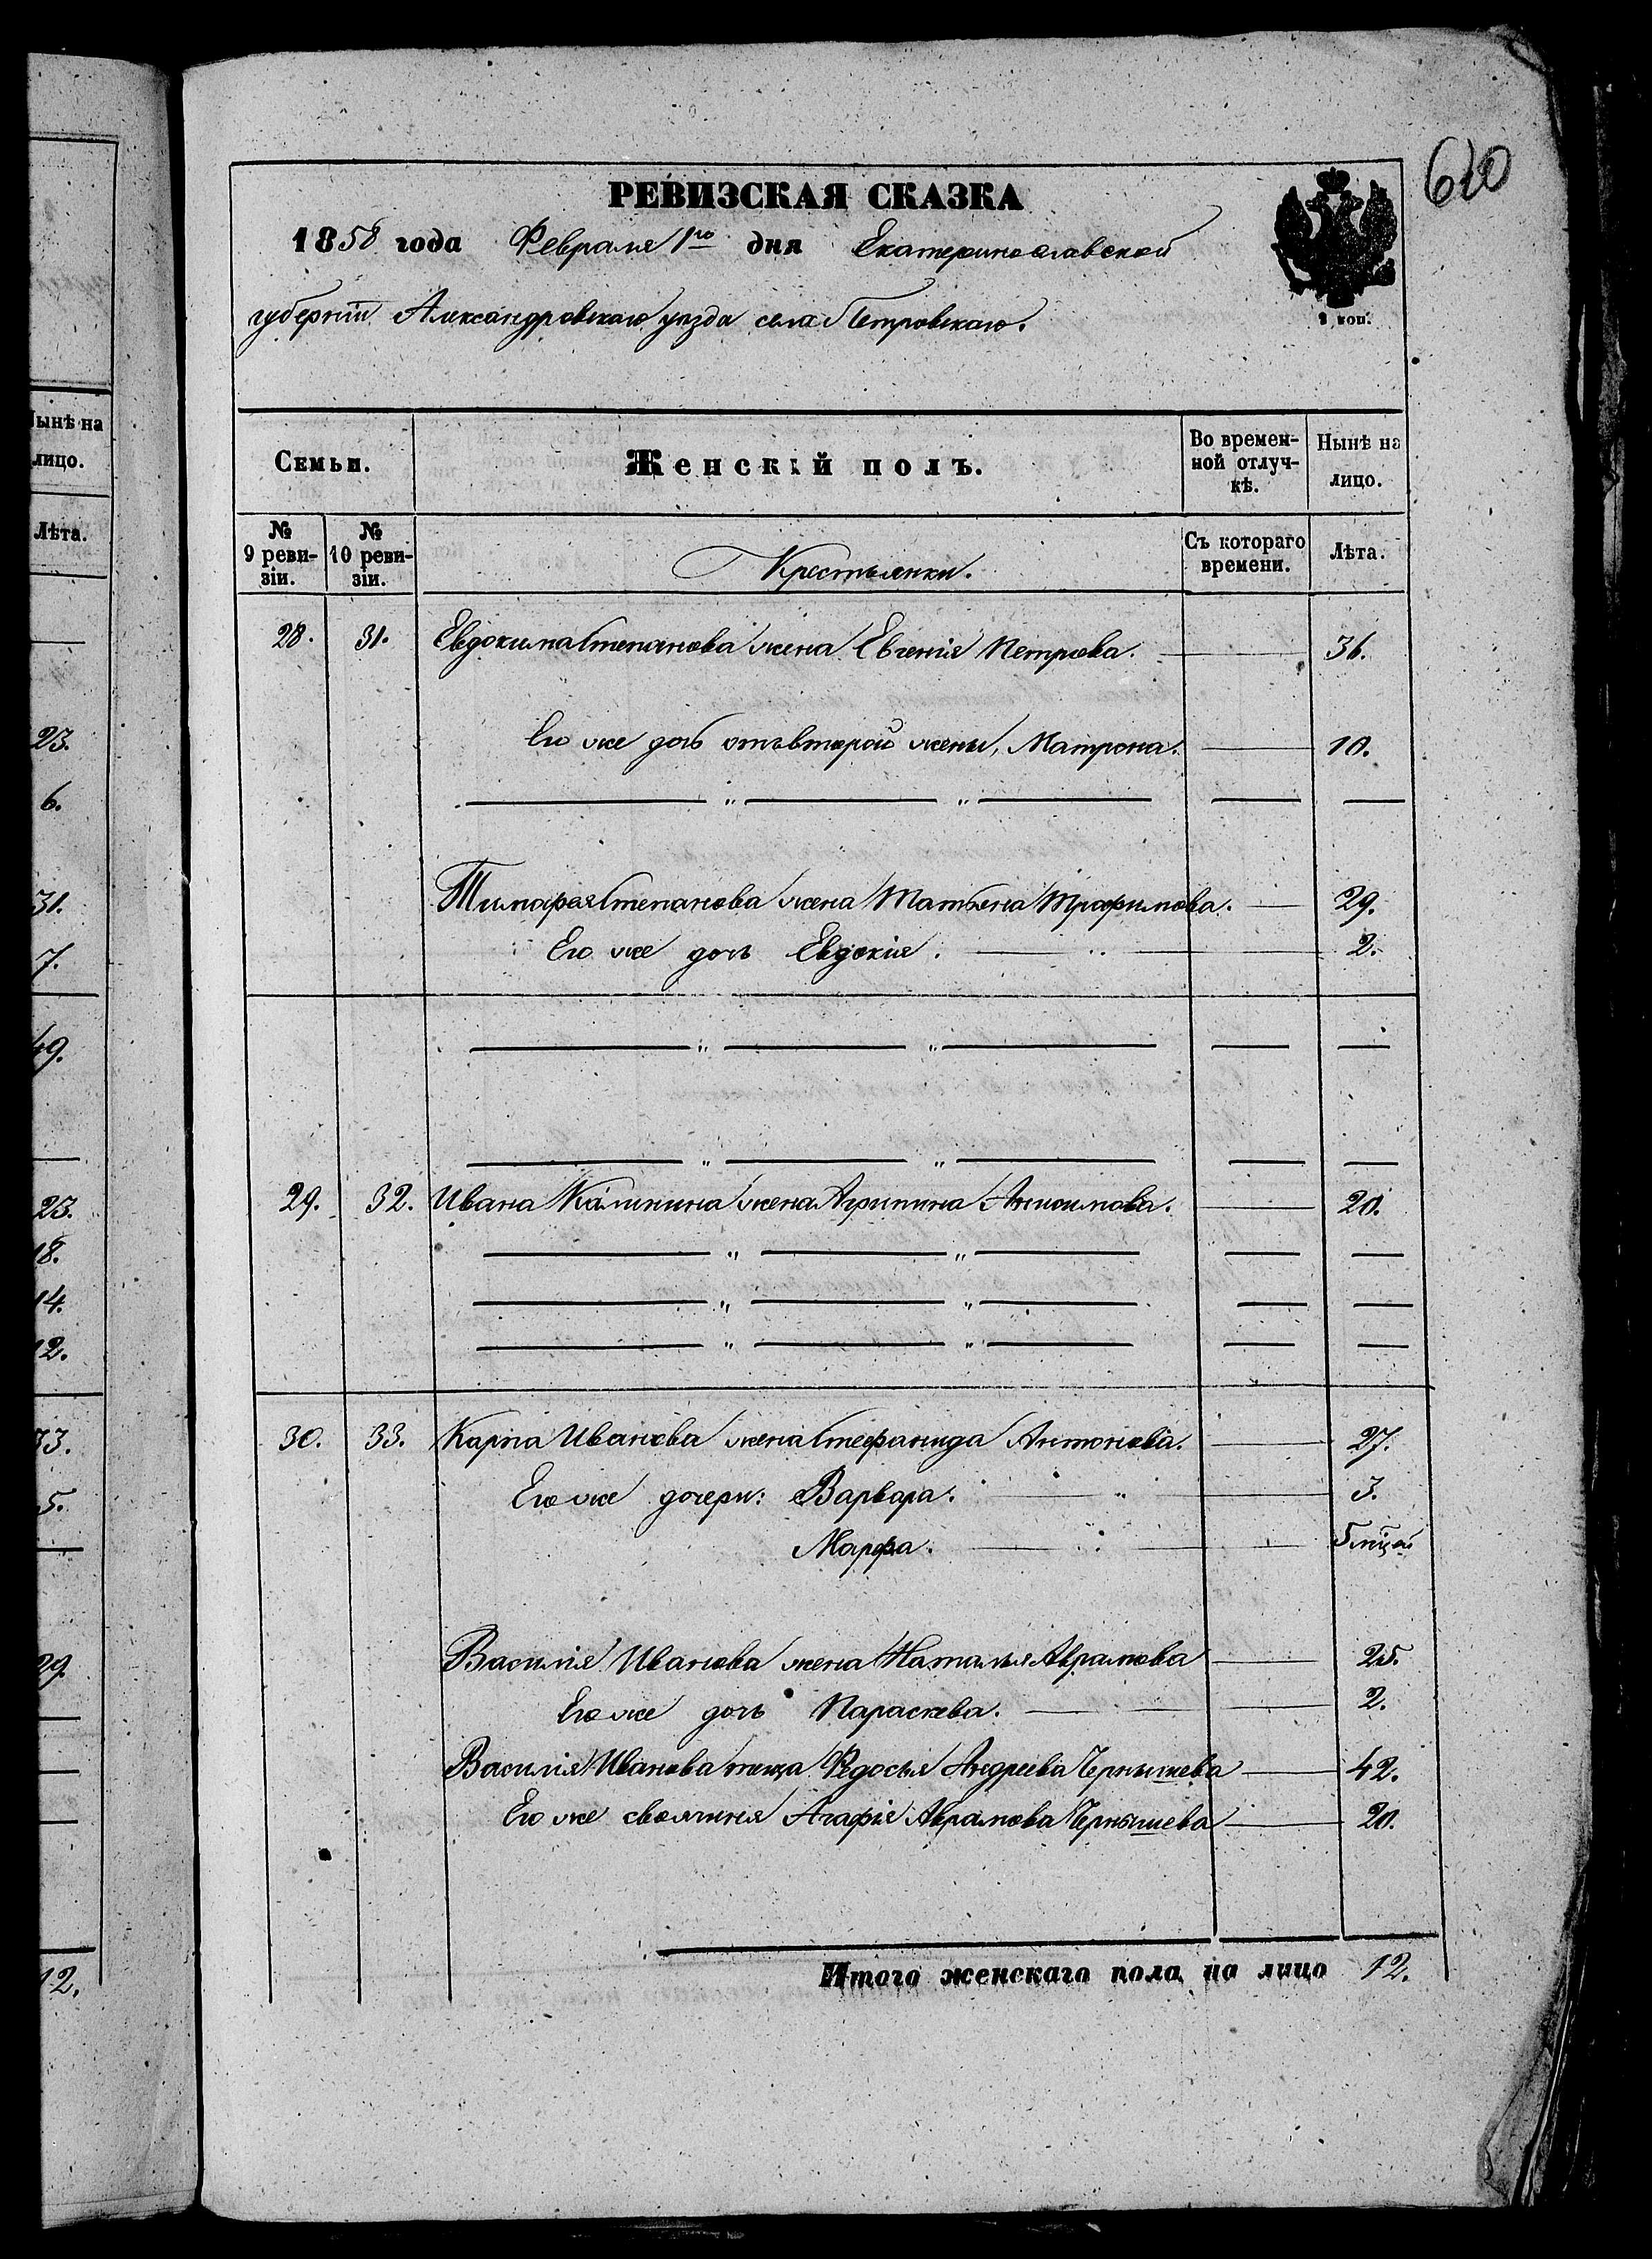 610
РЕВИЗСКАЯ СКАЗКА
1858 года Февраля 1го дня Екатеринославской
губерніи Александровскаго уезда села Петровскаго.
2 коп.
Семьи. Женскій полъ. Во времен-ной отлуч-кѣ. Нынѣ на лицо.
№ 9 реви-зіи. № 10 реви-зіи. Крестьянки. Съ котораго времени. Лѣта.
28. 31. Евдокима Степанова жена Евгенія Петрова. 36.
Его же дочь отъ второй жены, Матрона. 10.
Тимофея Степанова жена Татьяна Трофимова. 29.
Его же дочь Евдокія. 2.
29. 32. Ивана Калинина жена Агрипина Анисимова. 20.
30. 33. Карпа Иванова жена Стефанида Антонова. 27.
Его же дочери: Варвара. 3.
Марфа. 5 мцей
Василія Иванова жена Наталья Аврамова 25.
Его же дочь Параскева. 2.
Василія Иванова теща Федосья Андреева Чернышева 42.
Его же своячиня Агафія Аврамова Чернышева 20.
Итого женскаго пола на лицо 12.
Нынѣ на
лицо.
Лѣта.
23.
6.
31.
7.
49.
23.
18.
14.
12.
33.
5.
29
12.